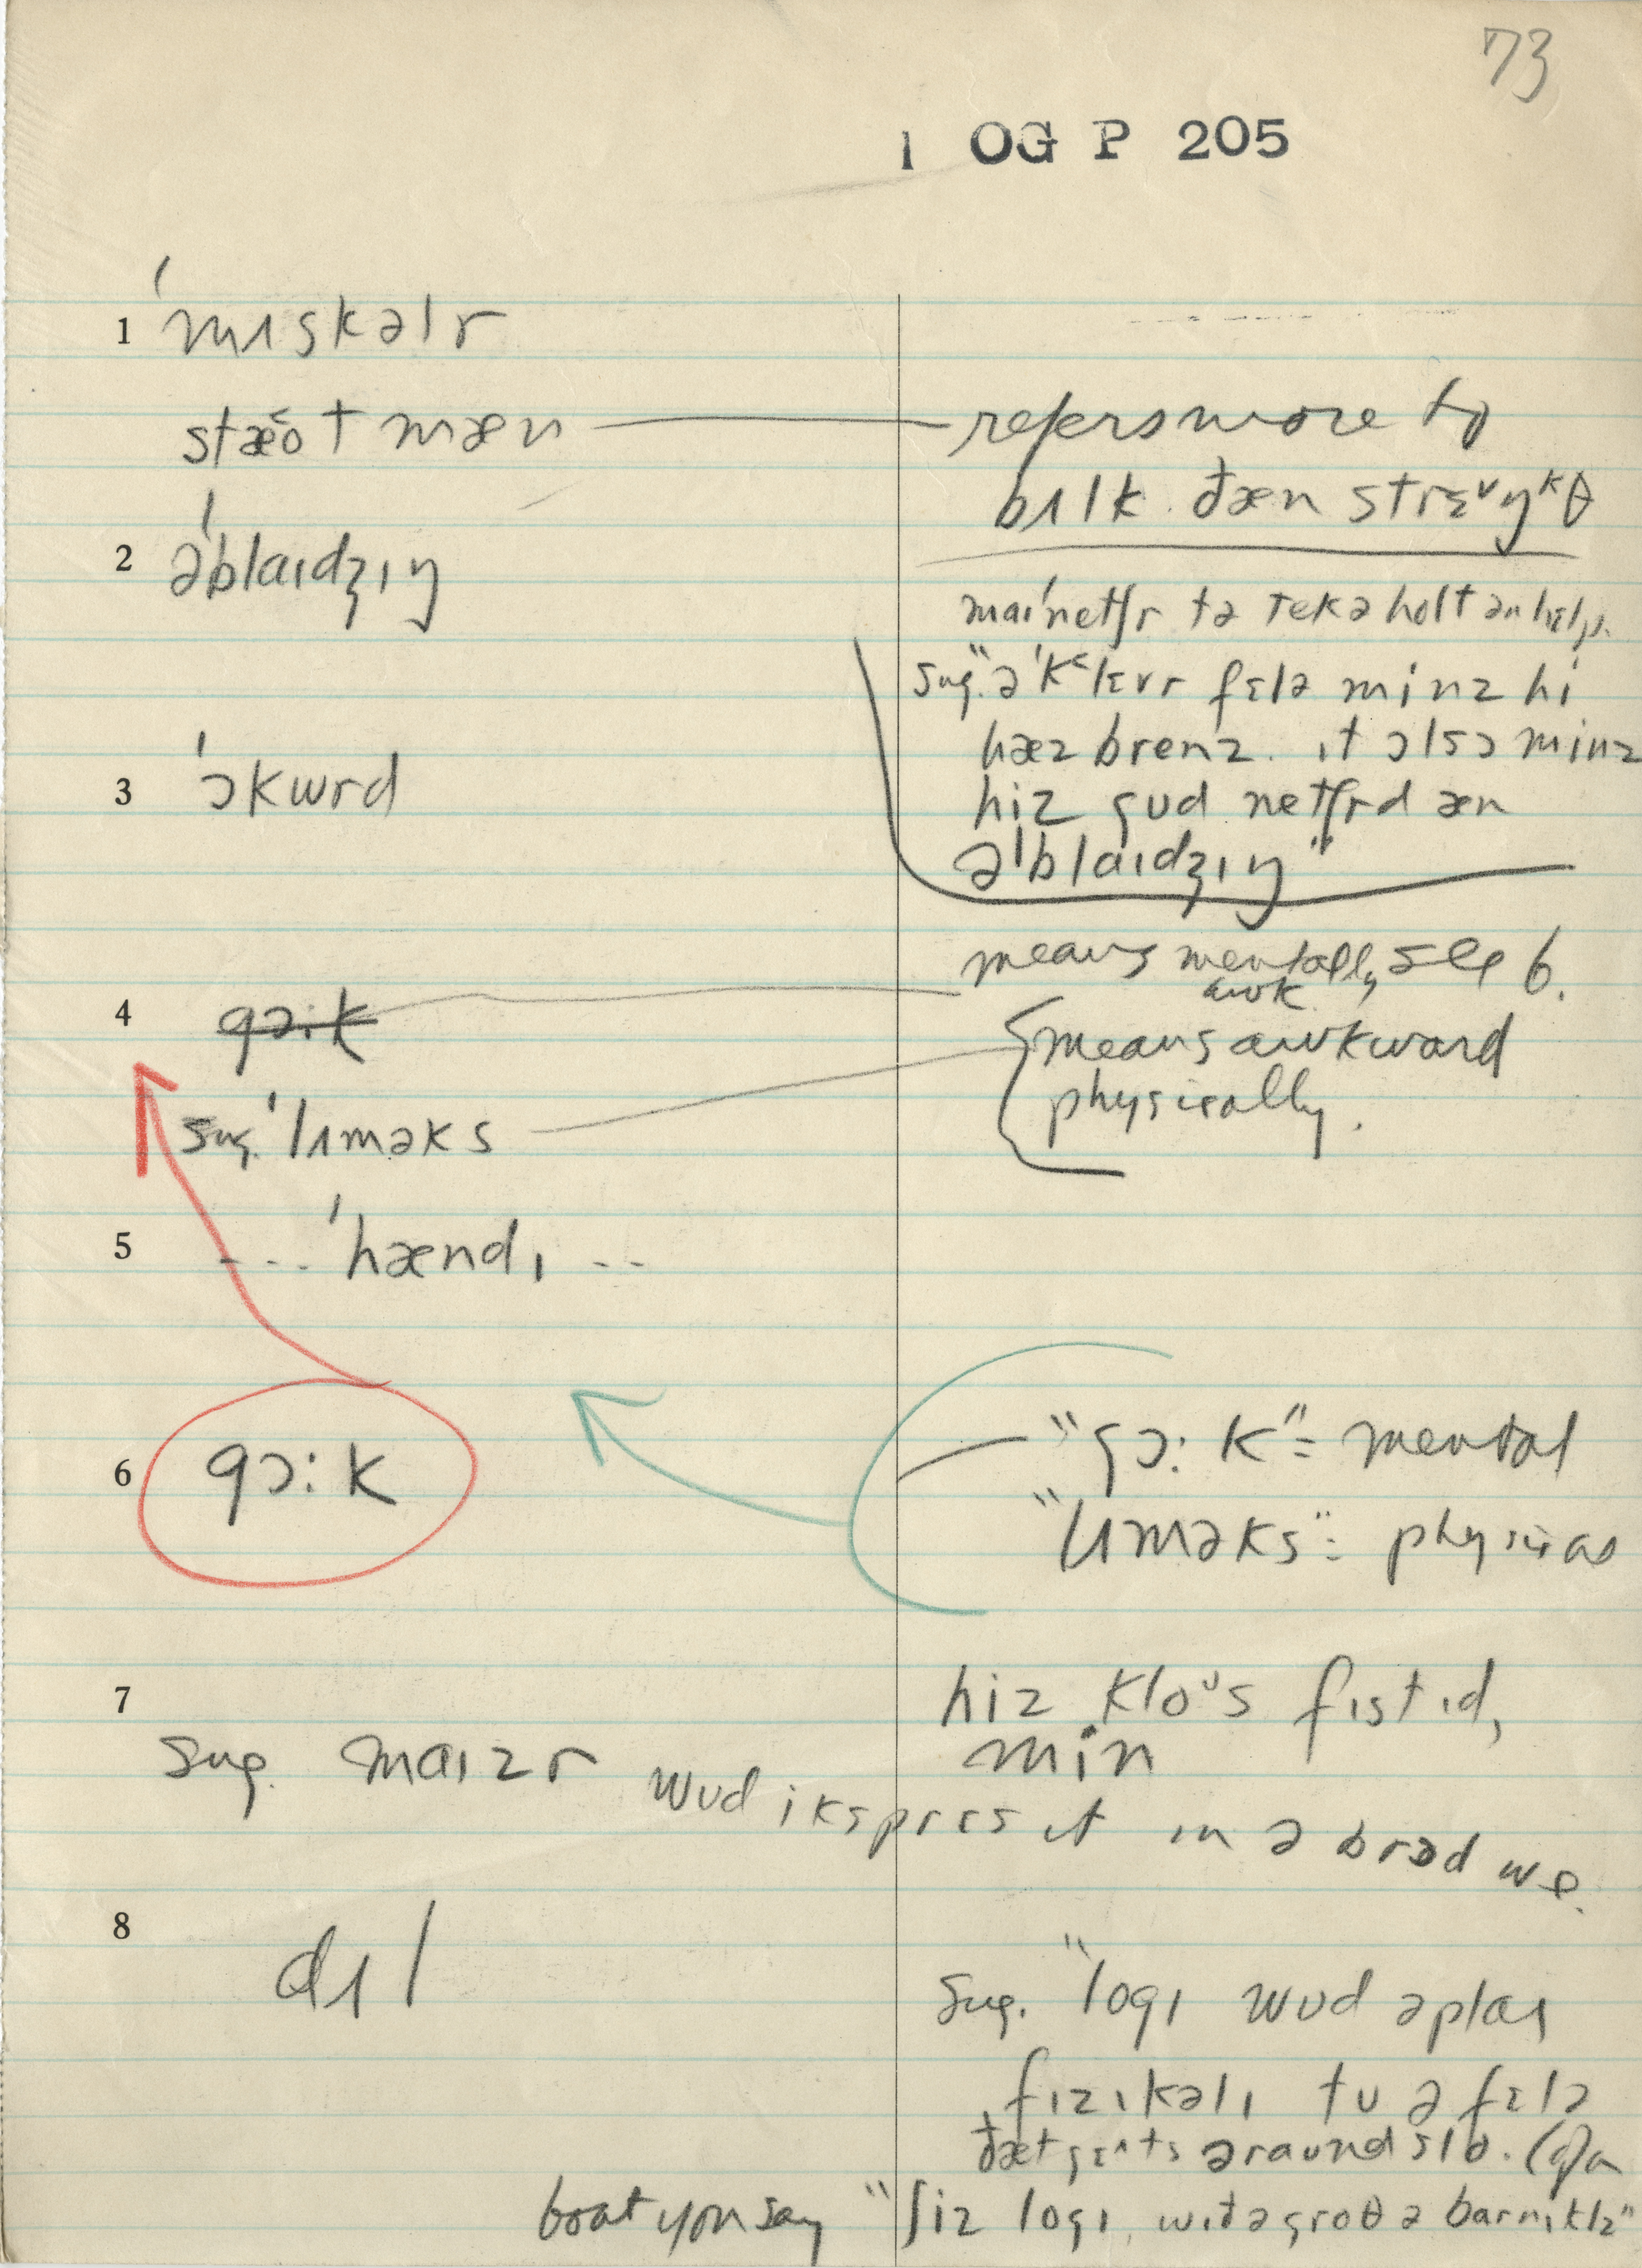 73
1 OG P 205
1 ˈmɪskəlr
stæot mæn — refers more to
bʌlk ðæn strɛŋᵏθ
2 əˈblaɪdʒɪŋ
maiˈnetʃr tə tek ə holt ən hɛlp.
sug. "ə ˈklɛvr fɛlə minz hi
hæz brenz. ɪt ɔlsɔ minz
hiz gud netʃrd æn
əˈblaɪdʒɪŋ"
3 ˈɔkwrd
means mentally see 6.
awk
4 gɔ:k
means awkward
physically.
sug. ˈlɪməks
5 ... ˈhændɪ --
6 gɔ:k
"gɔ:k" = mental
"lɪməks" = physical
7 hiz kloᵘs fɪstɪd,
min
sug. maɪzr wud iksprɛs ɪt ɪn ə brɔd we.
8 dʌl
sug. "logɪ wud əplaɪ
fɪzɪkəlɪ tu ə fɛlə
ðæt gɛts əraund slo. (Of a
boat you say "ʃiz logɪ wɪð ə groθ ə barnɪklz"